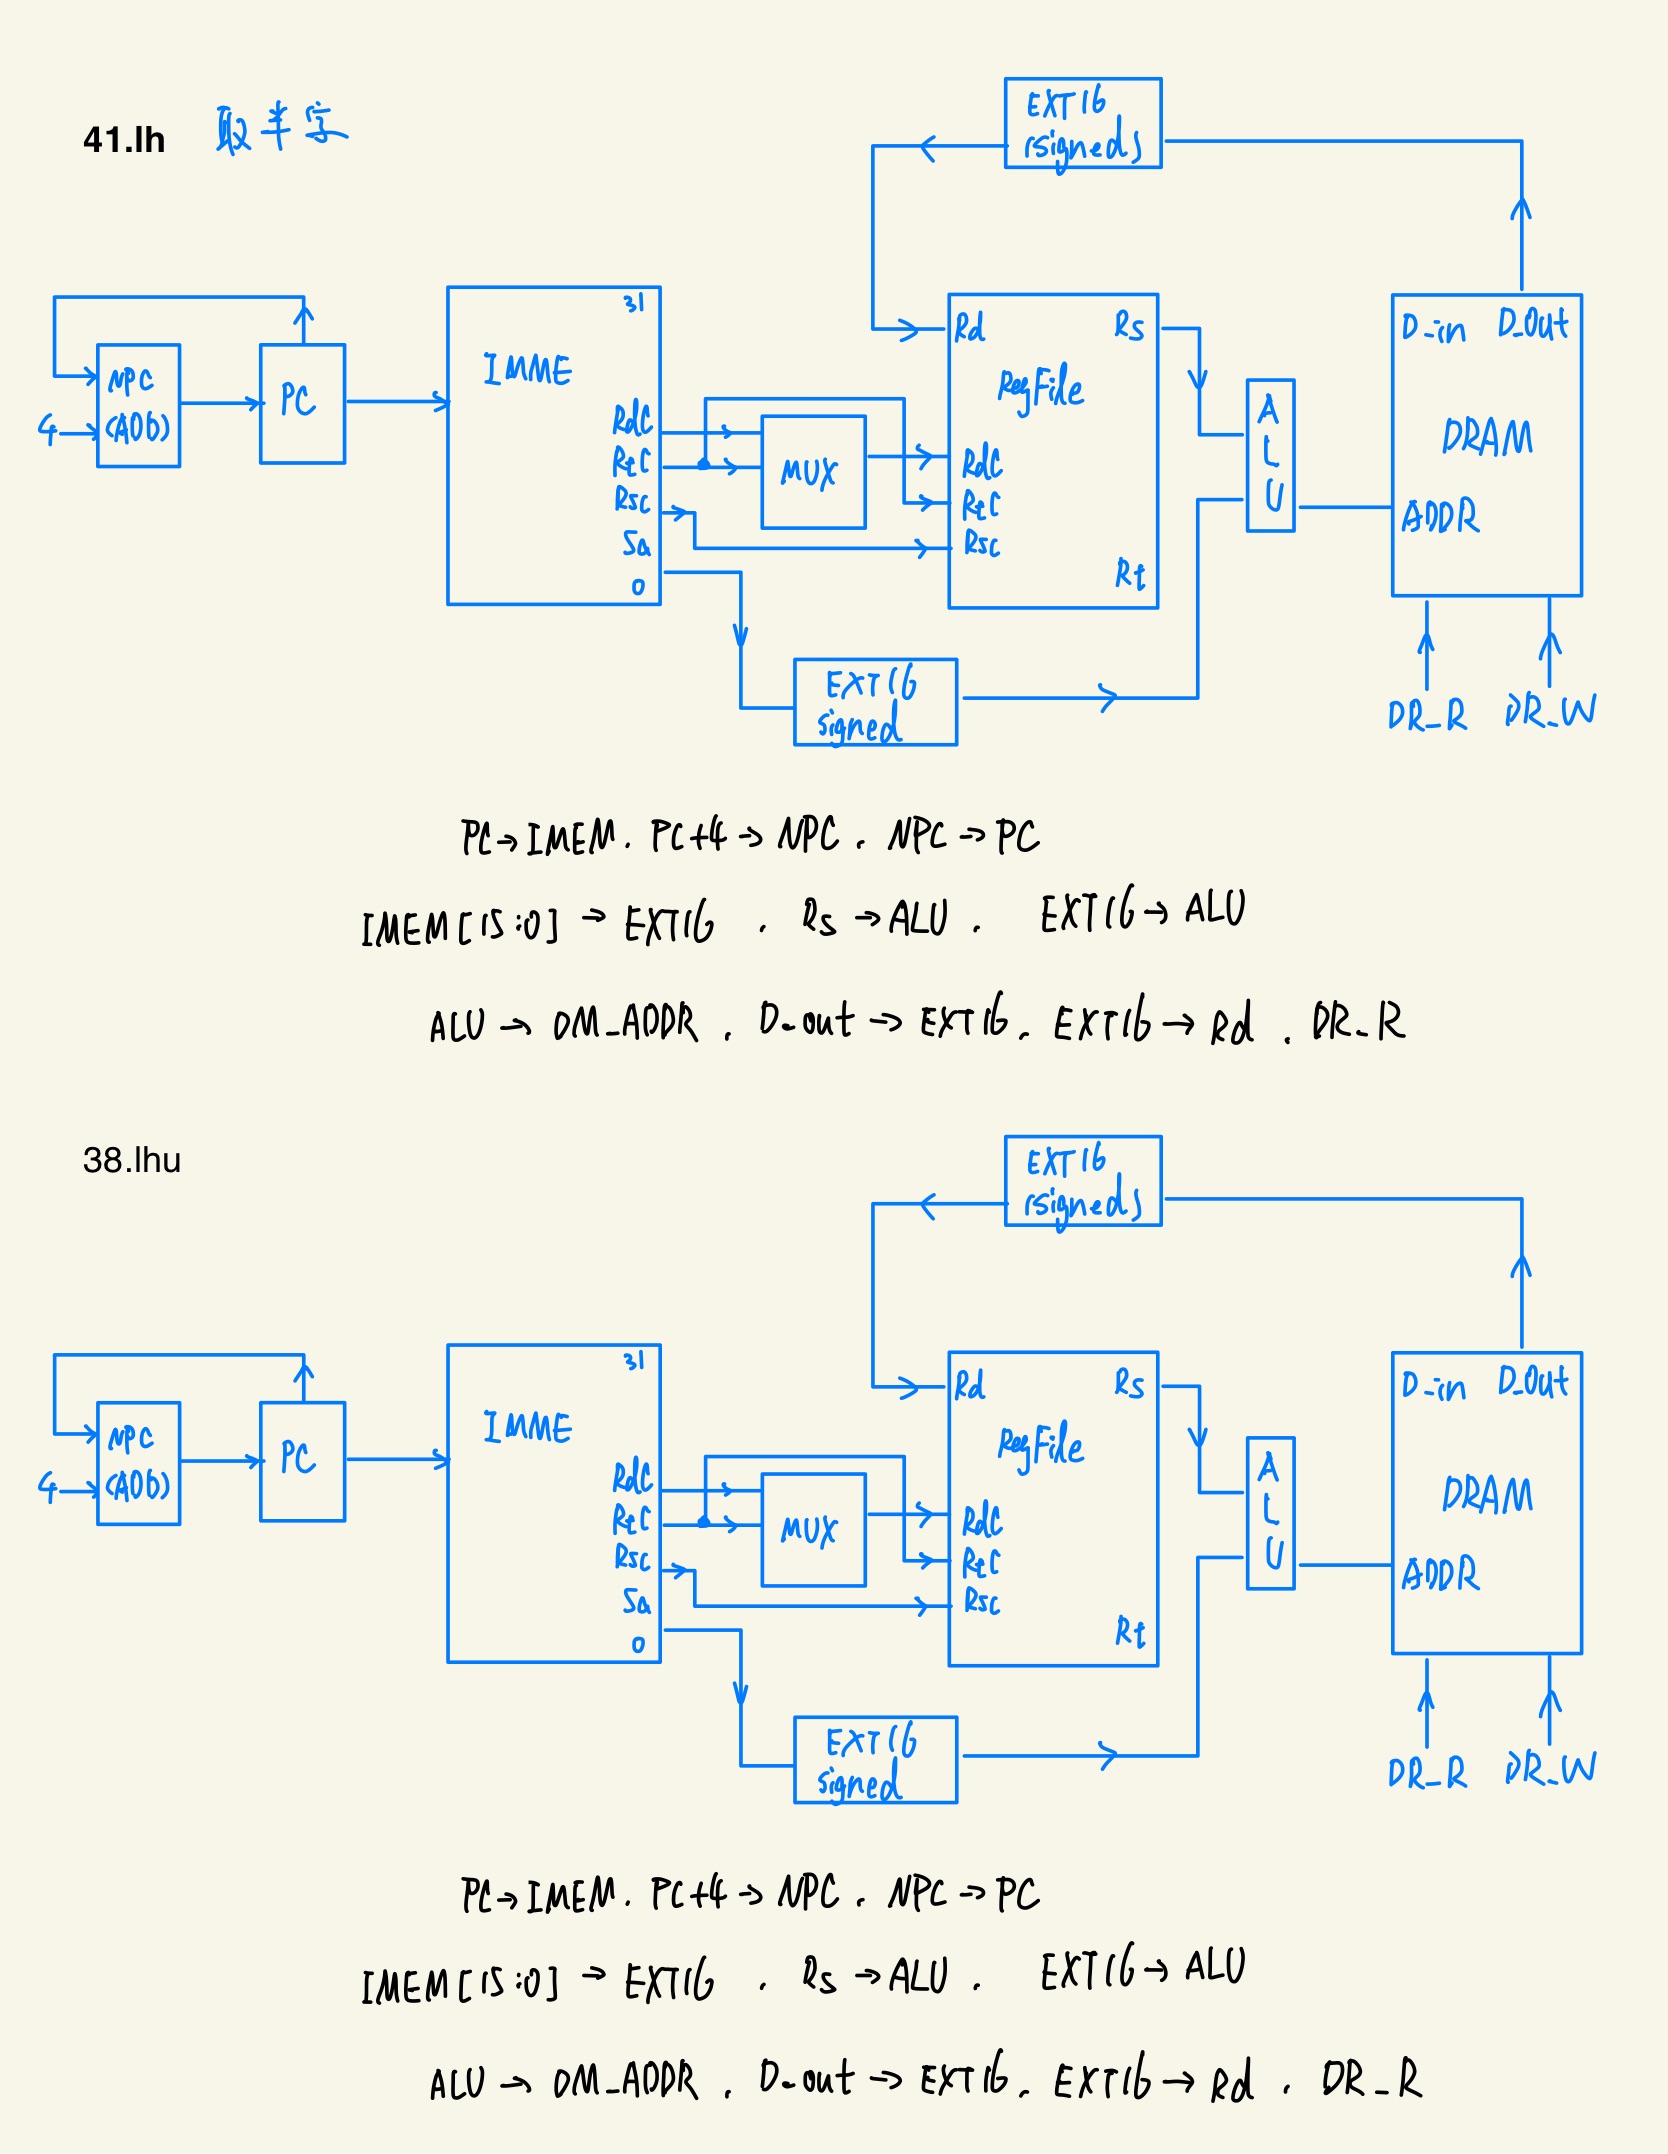 41.lh 取半字
EXT16
(signed)
31
IMME
RdC
RtC
Rsc
Sa
0
NPC
(ADD)
4
PC
MUX
Rd
Rs
RegFile
RdC
RtC
Rsc
Rt
A
L
U
D_in D_Out
DRAM
ADDR
EXT16
signed
DR_R DR_W
PC→IMEM. PC+4→NPC. NPC→PC
IMEM[15:0]→EXT16. Rs→ALU. EXT16→ALU
ALU→DM_ADDR. D_out→EXT16. EXT16→Rd. DR_R
38.lhu
EXT16
(signed)
31
IMME
RdC
RtC
Rsc
Sa
0
NPC
(ADD)
4
PC
MUX
Rd
Rs
RegFile
RdC
RtC
Rsc
Rt
A
L
U
D_in D_Out
DRAM
ADDR
EXT16
signed
DR_R DR_W
PC→IMEM. PC+4→NPC. NPC→PC
IMEM[15:0]→EXT16. Rs→ALU. EXT16→ALU
ALU→DM_ADDR. D_out→EXT16. EXT16→Rd. DR_R